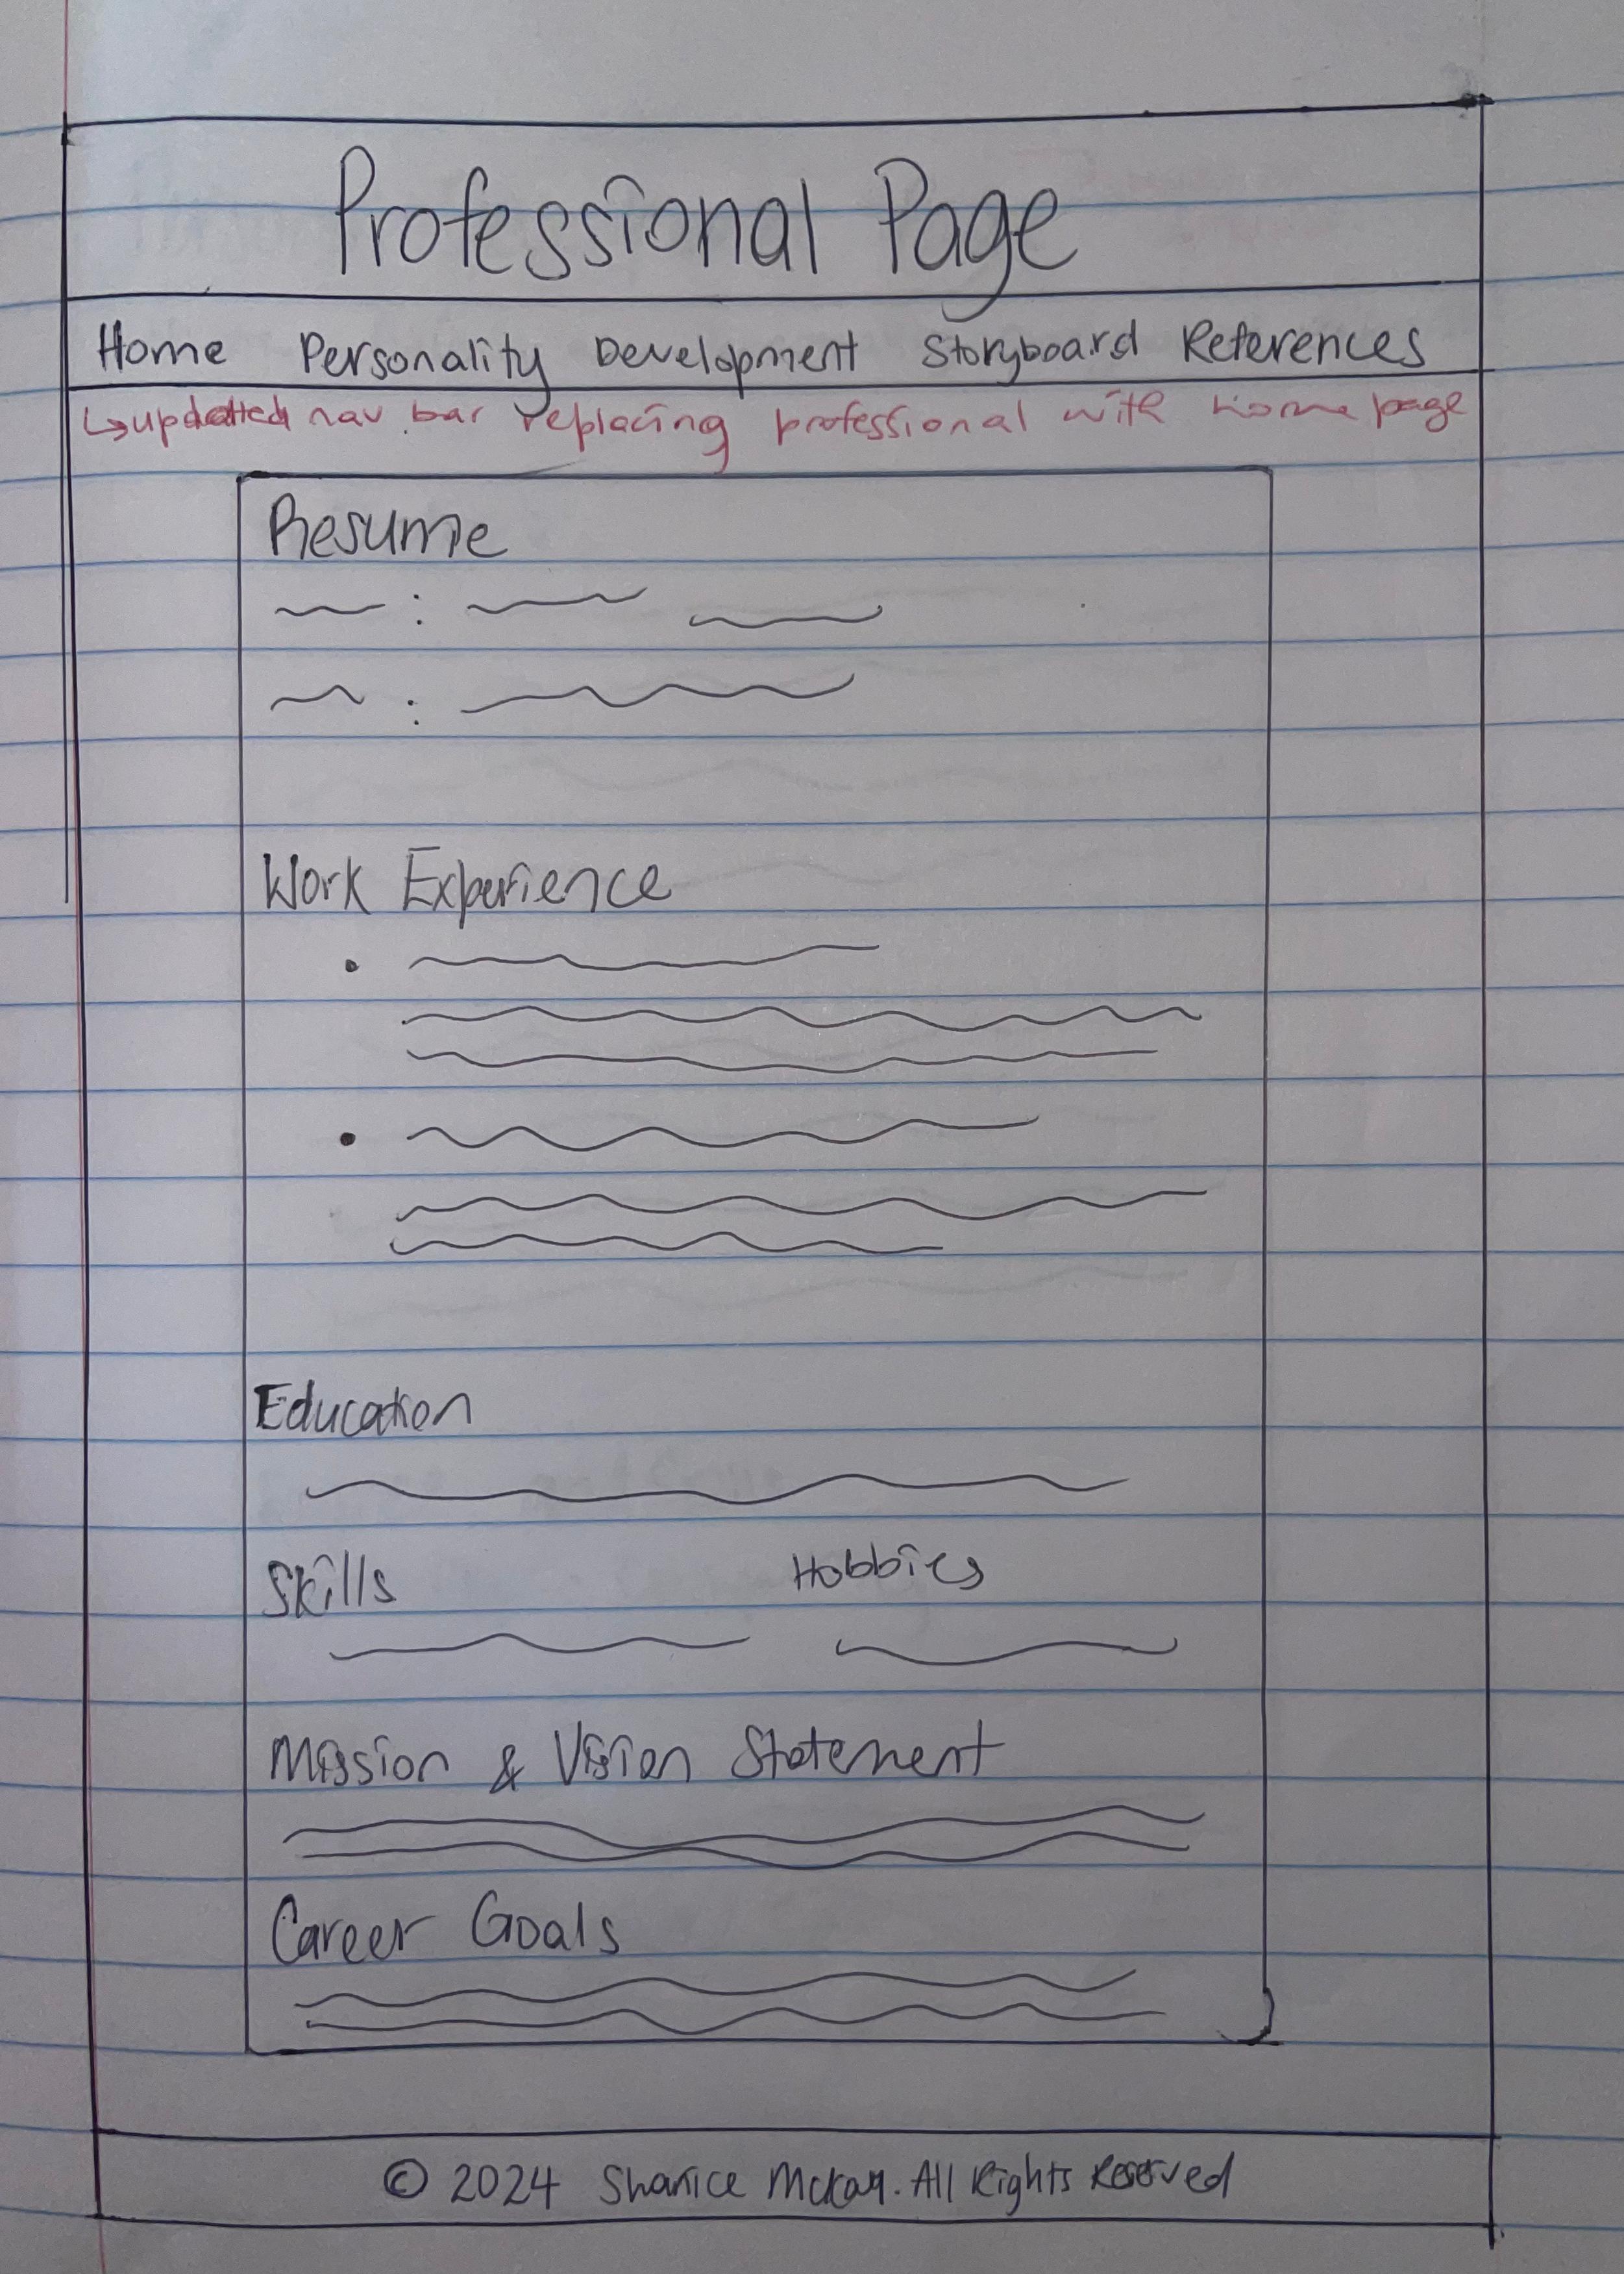 Professional Page
Home Personality Development Storyboard References
↳ updated nav bar replacing professional with home page
Resume
Work Experience
Education
Skills Hobbies
Mission & Vision Statement
Career Goals
© 2024 Shanice McKay. All Rights Reserved